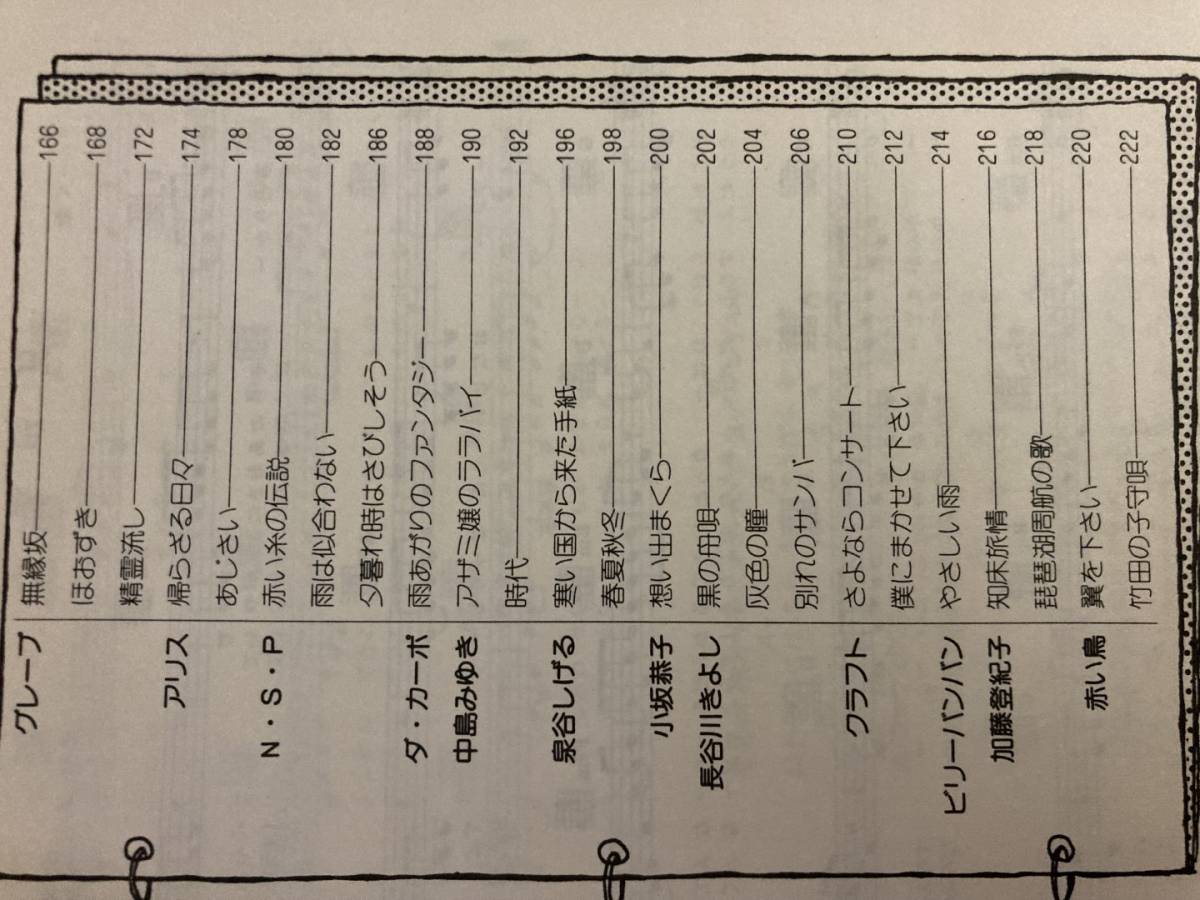 グレープ 無縁坂 166
ほおずき 168
精霊流し 172
アリス 帰らざる日々 174
あじさい 178
N・S・P 赤い糸の伝説 180
雨は似合わない 182
夕暮れ時はさびしそう 186
ダ・カーポ 雨あがりのファンタジー 188
中島みゆき アザミ嬢のララバイ 190
時代 192
泉谷しげる 寒い国から来た手紙 196
春夏秋冬 198
小坂恭子 想い出まくら 200
長谷川きよし 黒の舟唄 202
灰色の瞳 204
別れのサンバ 206
クラフト さよならコンサート 210
僕にまかせて下さい 212
ビリーバンバン やさしい雨 214
加藤登紀子 知床旅情 216
琵琶湖周航の歌 218
赤い鳥 翼を下さい 220
竹田の子守唄 222